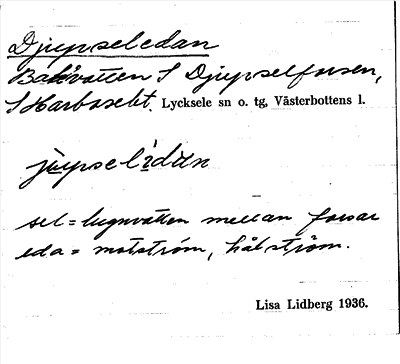 Djupseledan
Bakvatten S Djupselforsen,
S Harboselet. Lycksele sn o. tg, Västerbottens l.
sel = lugnvatten mellan forsar
eda = motström, hålström.
Lisa Lidberg 1936.